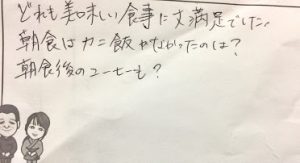 どれも美味しい食事に大満足でした。
朝食はカニ飯がなかったのは?
朝食後のコーヒーも?